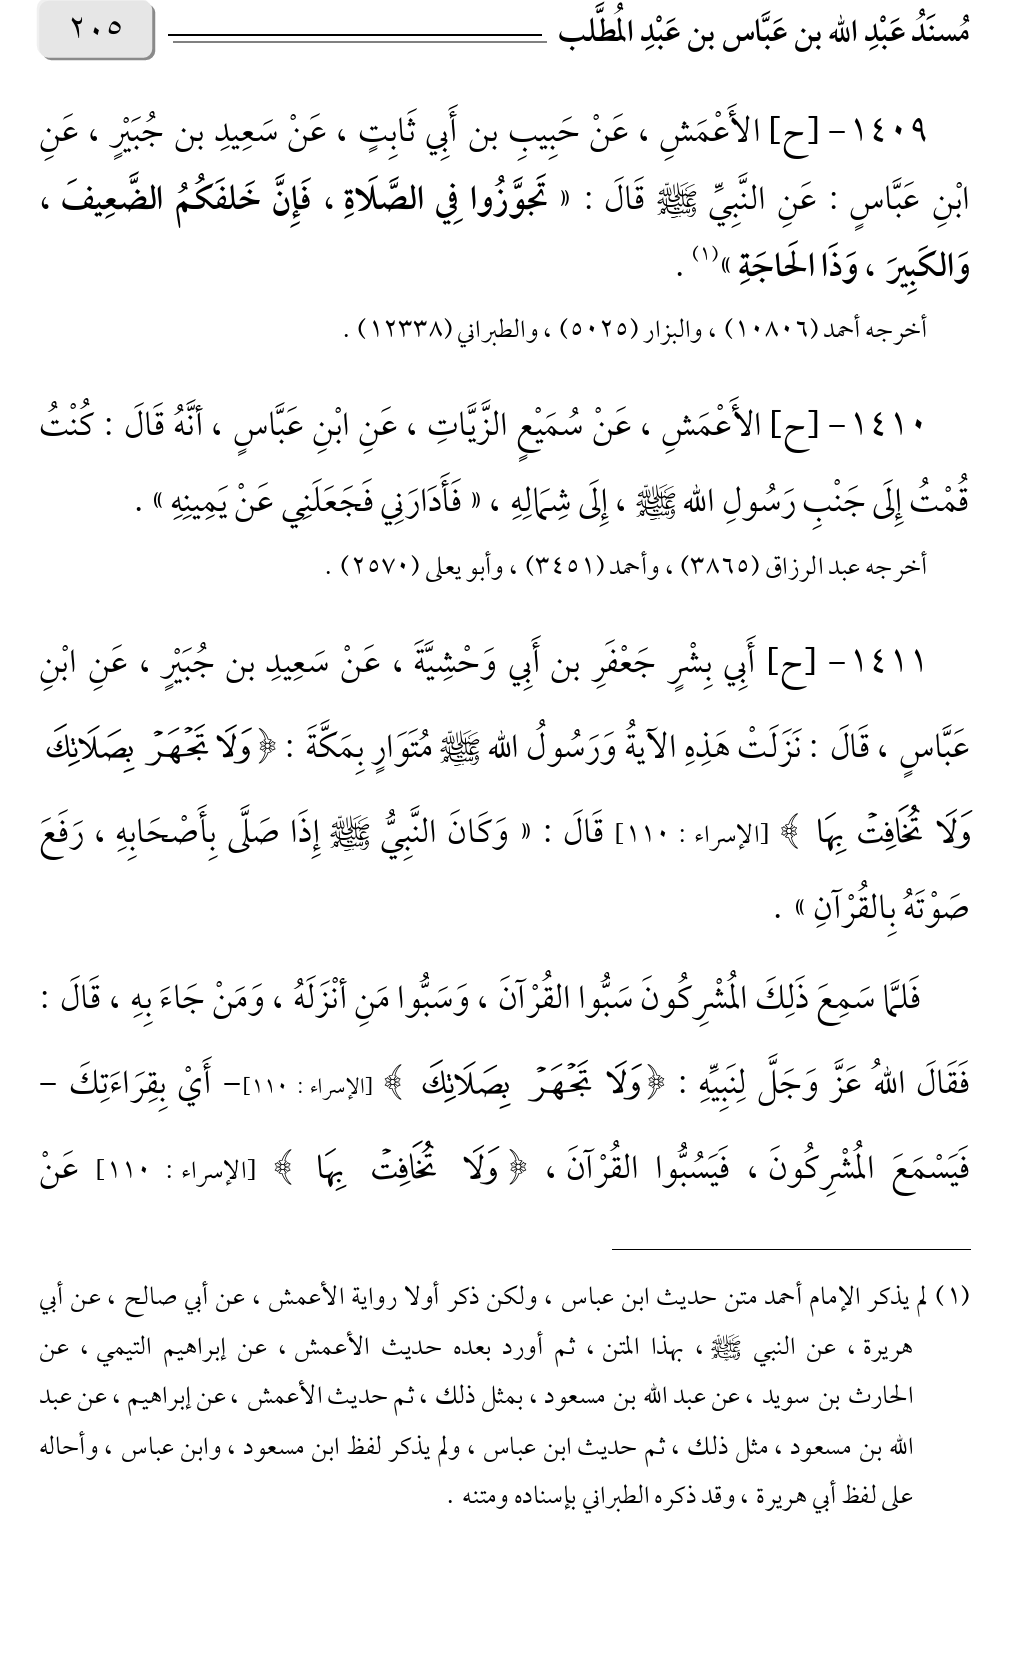 مُسنَدُ عَبْدِ الله بن عَبَّاس بن عَبْدِ المُطَّلب ٢٠٥
١٤٠٩- [ح] الأَعْمَشِ ، عَنْ حَبِيبِ بن أَبِي ثَابِتٍ ، عَنْ سَعِيدِ بن جُبَيْرٍ ، عَنِ
ابْنِ عَبَّاسٍ : عَنِ النَّبِيِّ ﷺ قَالَ : « تَجَوَّزُوا فِي الصَّلَاةِ ، فَإِنَّ خَلفَكُمُ الضَّعِيفَ ،
وَالكَبِيرَ ، وَذَا الحَاجَةِ »(١) .
أخرجه أحمد (١٠٨٠٦) ، والبزار (٥٠٢٥) ، والطبراني (١٢٣٣٨) .
١٤١٠- [ح] الأَعْمَشِ ، عَنْ سُمَيْعٍ الزَّيَّاتِ ، عَنِ ابْنِ عَبَّاسٍ ، أنَّهُ قَالَ : كُنْتُ
قُمْتُ إِلَى جَنْبِ رَسُولِ الله ﷺ ، إِلَى شِمَالِهِ ، « فَأَدَارَنِي فَجَعَلَنِي عَنْ يَمِينِهِ » .
أخرجه عبد الرزاق (٣٨٦٥) ، وأحمد (٣٤٥١) ، وأبو يعلى (٢٥٧٠) .
١٤١١- [ح] أَبِي بِشْرٍ جَعْفَرِ بن أَبِي وَحْشِيَّةَ ، عَنْ سَعِيدِ بن جُبَيْرٍ ، عَنِ ابْنِ
عَبَّاسٍ ، قَالَ : نَزَلَتْ هَذِهِ الآيةُ وَرَسُولُ الله ﷺ مُتَوَارٍ بِمَكَّةَ : ﴿وَلَا تَجْهَرْ بِصَلَاتِكَ
وَلَا تُخَافِتْ بِهَا ﴾ [الإسراء : ١١٠] قَالَ : « وَكَانَ النَّبِيُّ ﷺ إِذَا صَلَّى بِأَصْحَابِهِ ، رَفَعَ
صَوْتَهُ بِالقُرْآنِ » .
فَلمَّا سَمِعَ ذَلِكَ المُشْرِكُونَ سَبُّوا القُرْآنَ ، وَسَبُّوا مَنِ أنْزَلَهُ ، وَمَنْ جَاءَ بِهِ ، قَالَ :
فَقَالَ اللهُ عَزَّ وَجَلَّ لِنَبِيِّهِ : ﴿وَلَا تَجْهَرْ بِصَلَاتِكَ ﴾ [الإسراء : ١١٠]– أَيْ بِقِرَاءَتِكَ –
فَيَسْمَعَ المُشْرِكُونَ ، فَيَسُبُّوا القُرْآنَ ، ﴿وَلَا تُخَافِتْ بِهَا ﴾ [الإسراء : ١١٠] عَنْ
(١) لم يذكر الإمام أحمد متن حديث ابن عباس ، ولكن ذكر أولا رواية الأعمش ، عن أبي صالح ، عن أبي
هريرة ، عن النبي ﷺ ، بهذا المتن ، ثم أورد بعده حديث الأعمش ، عن إبراهيم التيمي ، عن
الحارث بن سويد ، عن عبد الله بن مسعود ، بمثل ذلك ، ثم حديث الأعمش ، عن إبراهيم ، عن عبد
الله بن مسعود ، مثل ذلك ، ثم حديث ابن عباس ، ولم يذكر لفظ ابن مسعود ، وابن عباس ، وأحاله
على لفظ أبي هريرة ، وقد ذكره الطبراني بإسناده ومتنه .